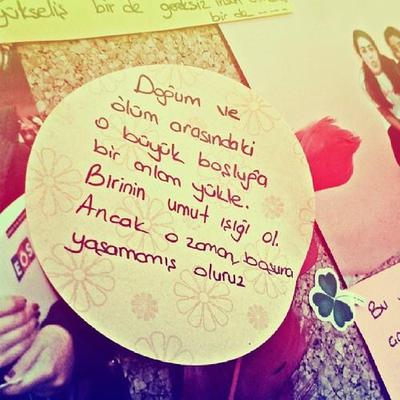 yükseliş bir de gereksiz insan
bir de
Doğum ve
ölüm arasındaki
o büyük boşluğa
bir anlam yükle.
Birinin umut ışığı ol.
Ancak o zaman, boşuna
yaşamamış oluruz
EOS
Bu